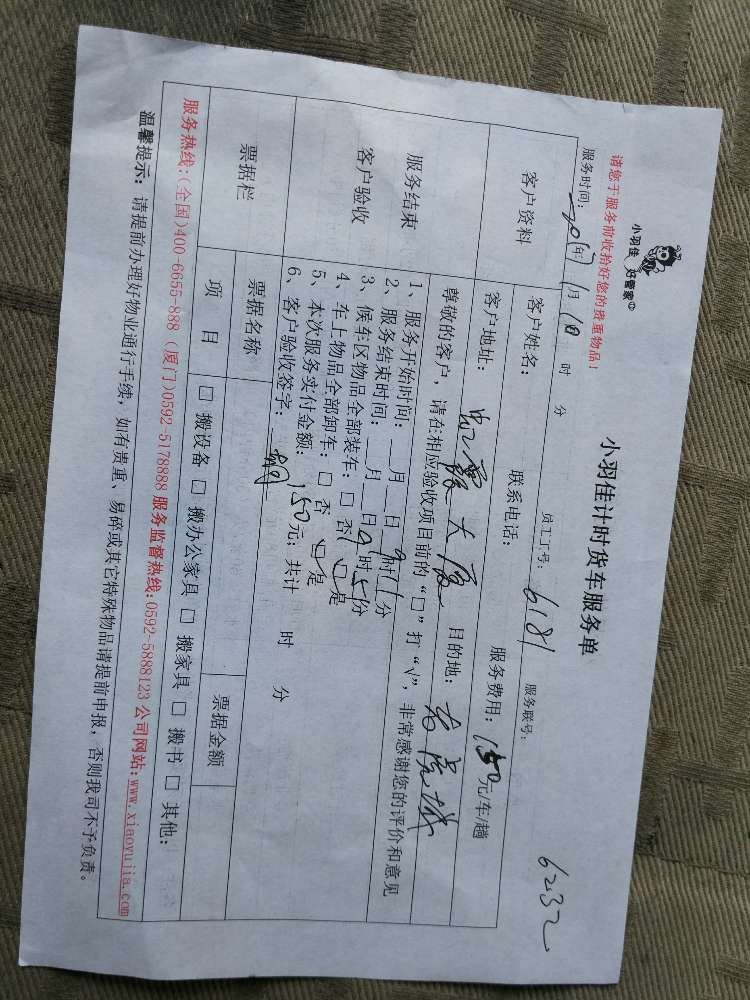 小羽佳 好管家
小羽佳计时货车服务单
6232
请您于服务前收拾好您的贵重物品！
服务时间： 年 1月10 时 分 员工工号：6181 服务联号：
客户资料
客户姓名： 联系电话： 服务费用：150元/车/趟
客户地址： 大厦 目的地：
服务结束
客户验收
尊敬的客户，请在相应验收项目前的“□”打“√”，非常感谢您的评价和意见
1、服务开始时间：__月__日9时11分
2、服务结束时间：__月__日9时51分
3、候车区物品全部装车：□ 否 □ 是
4、车上物品全部卸车：□ 否 □ 是
5、本次服务实付金额：150元；共计 时 分
6、客户验收签字：
票据栏
票据名称 票据金额
项 目 □ 搬设备 □ 搬办公家具 □ 搬家具 □ 搬书 □ 其他：
服务热线：(全国)400-6655-888 (厦门)0592-5178888 服务监督热线:0592-5888123 公司网站:www.xiaoyujia.com
温馨提示：请提前办理好物业通行手续，如有贵重、易碎或其它特殊物品请提前申报，否则我司不予负责。